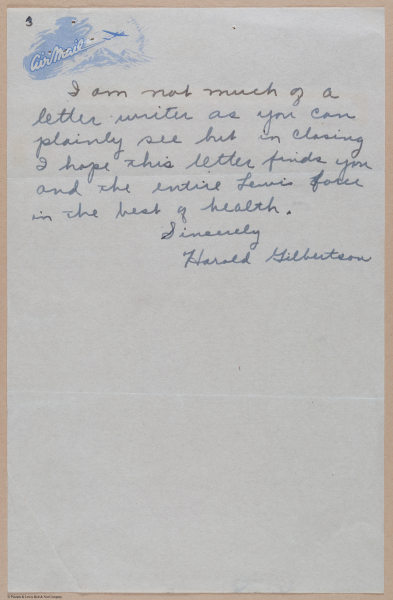 3
Air Mail
I am not much of a
letter writer as you can
plainly see but in closing
I hope this letter finds you
and the entire Lewis force
in the best of health.
Sincerely
Harold Gilbertson